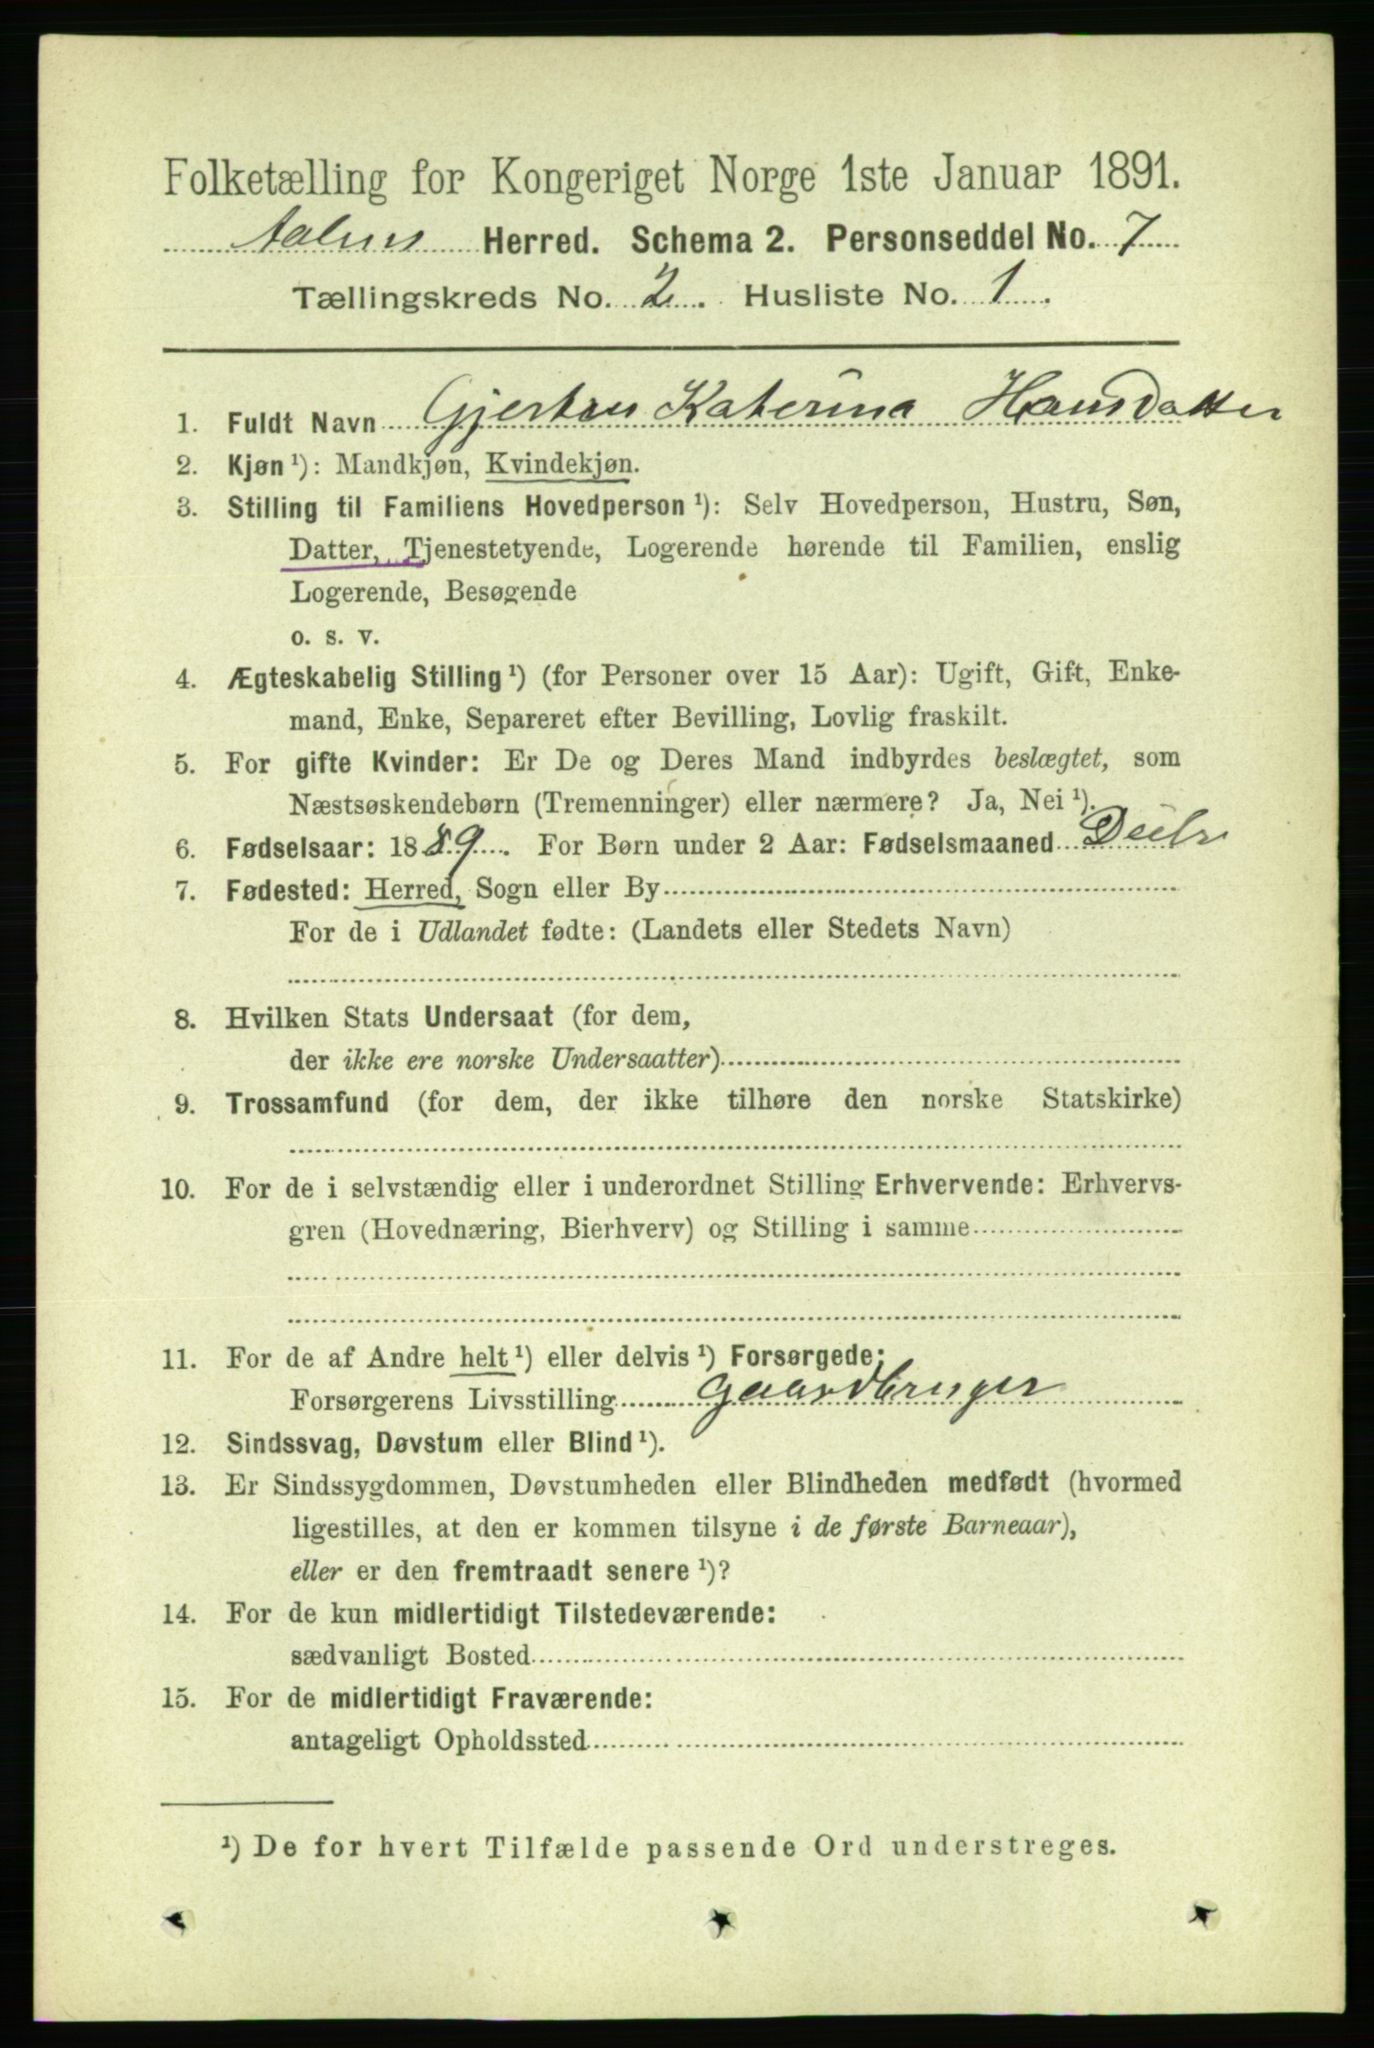 Folketælling for Kongeriget Norge 1ste Januar 1891.
Herred. Schema 2. Personseddel No. 7
Tællingskreds No. 2. Husliste No. 1.
1. Fuldt Navn Katerina Hansdatter
2. Kjøn ¹): Mandkjøn, Kvindekjøn.
3. Stilling til Familiens Hovedperson ¹): Selv Hovedperson, Hustru, Søn,
Datter, Tjenestetyende, Logerende hørende til Familien, enslig
Logerende, Besøgende
o. s. v.
4. Ægteskabelig Stilling ¹) (for Personer over 15 Aar): Ugift, Gift, Enke-
mand, Enke, Separeret efter Bevilling, Lovlig fraskilt.
5. For gifte Kvinder: Er De og Deres Mand indbyrdes beslægtet, som
Næstsøskendebørn (Tremenninger) eller nærmere? Ja, Nei ¹).
6. Fødselsaar: 1889. For Børn under 2 Aar: Fødselsmaaned
7. Fødested: Herred, Sogn eller By
For de i Udlandet fødte: (Landets eller Stedets Navn)
8. Hvilken Stats Undersaat (for dem,
der ikke ere norske Undersaatter)
9. Trossamfund (for dem, der ikke tilhøre den norske Statskirke)
10. For de i selvstændig eller i underordnet Stilling Erhvervende: Erhvervs-
gren (Hovednæring, Bierhverv) og Stilling i samme
11. For de af Andre helt ¹) eller delvis ¹) Forsørgede:
Forsørgerens Livsstilling Gaardbruger
12. Sindssvag, Døvstum eller Blind ¹).
13. Er Sindssygdommen, Døvstumheden eller Blindheden medfødt (hvormed
ligestilles, at den er kommen tilsyne i de første Barneaar),
eller er den fremtraadt senere ¹)?
14. For de kun midlertidigt Tilstedeværende:
sædvanligt Bosted
15. For de midlertidigt Fraværende:
antageligt Opholdssted
¹) De for hvert Tilfælde passende Ord understreges.